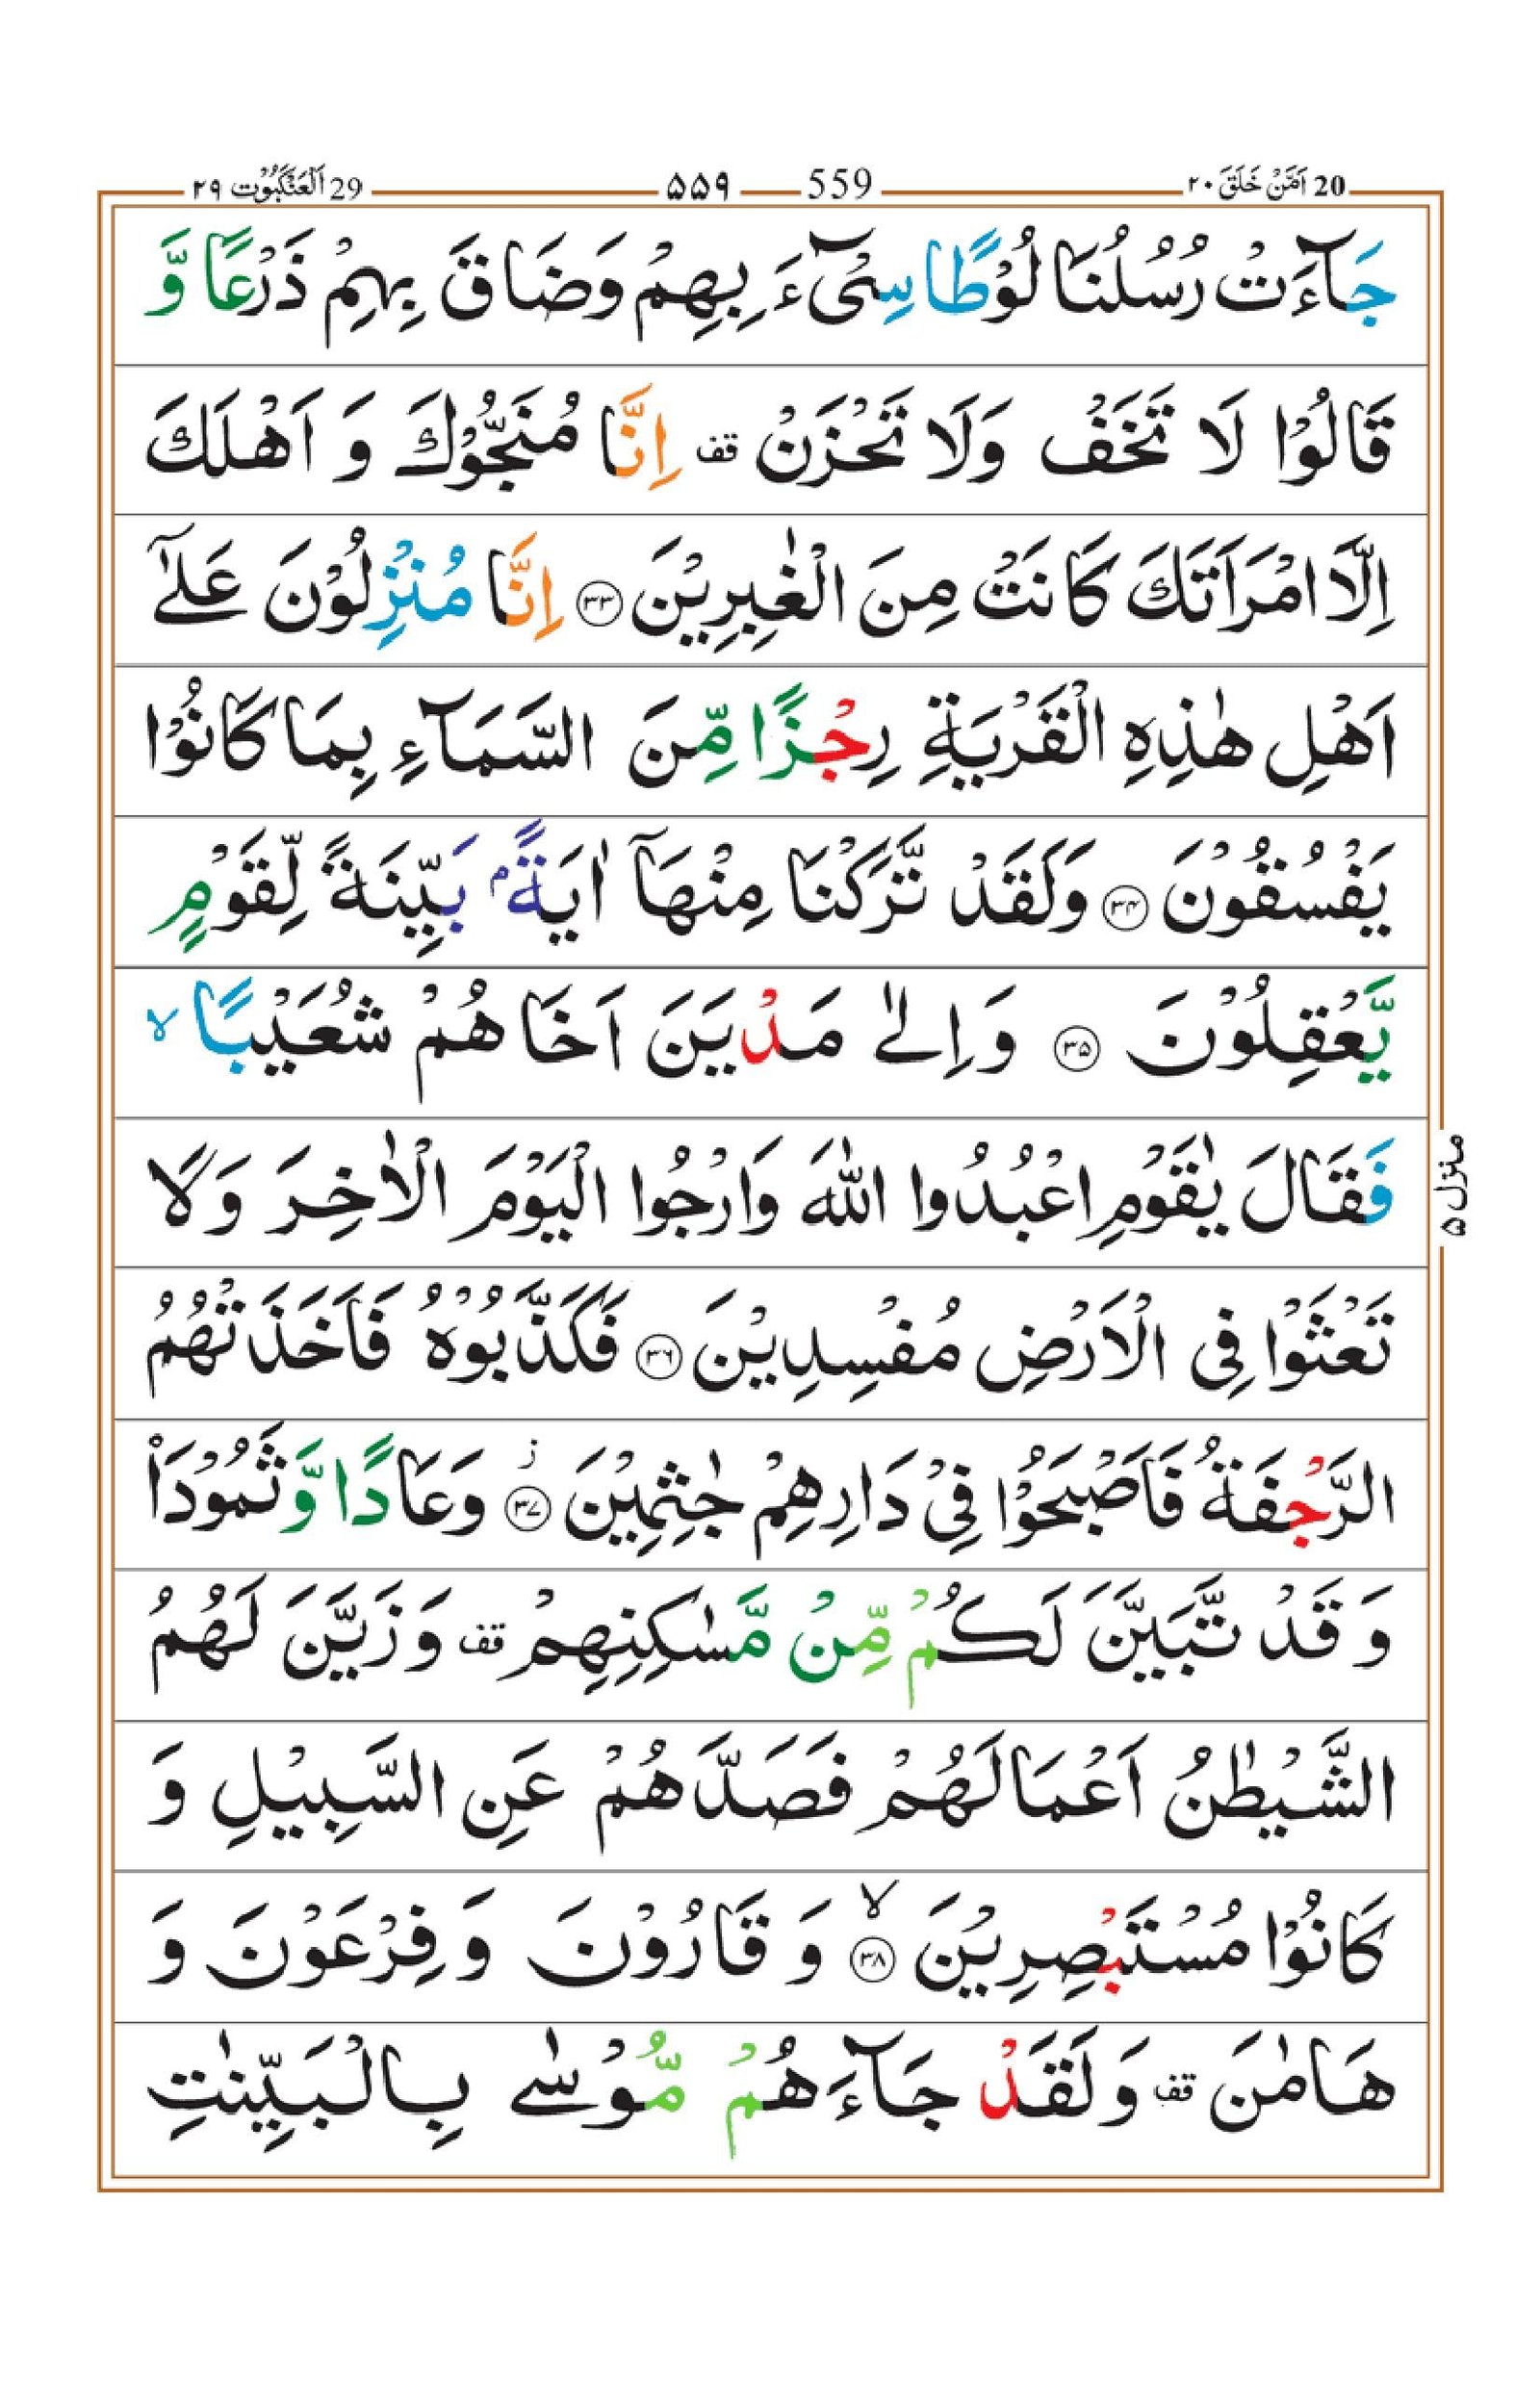 20 اَمَّنۡ خَلَقَ ۲۰ 559 ۵۵۹ 29 اَلۡعَنۡکَبُوۡت ۲۹
جَآءَتۡ رُسُلُنَا لُوۡطًا سِیۡٓءَ بِهِمۡ وَضَاقَ بِهِمۡ ذَرۡعًا وَّ
قَالُوۡا لَا تَخَفۡ وَلَا تَحۡزَنۡ قف اِنَّا مُنَجُّوۡكَ وَ اَهۡلَكَ
اِلَّا امۡرَاَتَكَ كَانَتۡ مِنَ الۡغٰبِرِيۡنَ ﴿۳۳﴾ اِنَّا مُنۡزِلُوۡنَ عَلٰٓى
اَهۡلِ هٰذِهِ الۡقَرۡيَةِ رِجۡزًا مِّنَ السَّمَآءِ بِمَا كَانُوۡا
يَفۡسُقُوۡنَ ﴿۳۴﴾ وَلَقَدۡ تَّرَكۡنَا مِنۡهَاۤ اٰيَةًۢ بَيِّنَةً لِّقَوۡمٍ
يَّعۡقِلُوۡنَ ﴿۳۵﴾ وَاِلٰى مَدۡيَنَ اَخَاهُمۡ شُعَيۡبًا ۙ
فَقَالَ يٰقَوۡمِ اعۡبُدُوا اللّٰهَ وَارۡجُوا الۡيَوۡمَ الۡاٰخِرَ وَلَا
تَعۡثَوۡا فِى الۡاَرۡضِ مُفۡسِدِيۡنَ ﴿۳۶﴾ فَكَذَّبُوۡهُ فَاَخَذَتۡهُمُ
الرَّجۡفَةُ فَاَصۡبَحُوۡا فِىۡ دَارِهِمۡ جٰثِمِيۡنَ ز ﴿۳۷﴾ وَعَادًا وَّثَمُوۡدَا۟
وَ قَدۡ تَّبَيَّنَ لَكُمۡ مِّنۡ مَّسٰكِنِهِمۡ قف وَزَيَّنَ لَهُمُ
الشَّيۡطٰنُ اَعۡمَالَهُمۡ فَصَدَّهُمۡ عَنِ السَّبِيۡلِ وَ
كَانُوۡا مُسۡتَبۡصِرِيۡنَ ۙ ﴿۳۸﴾ وَ قَارُوۡنَ وَ فِرۡعَوۡنَ وَ
هَامٰنَ قف وَلَقَدۡ جَآءَهُمۡ مُّوۡسٰى بِالۡبَيِّنٰتِ
منزل ۵